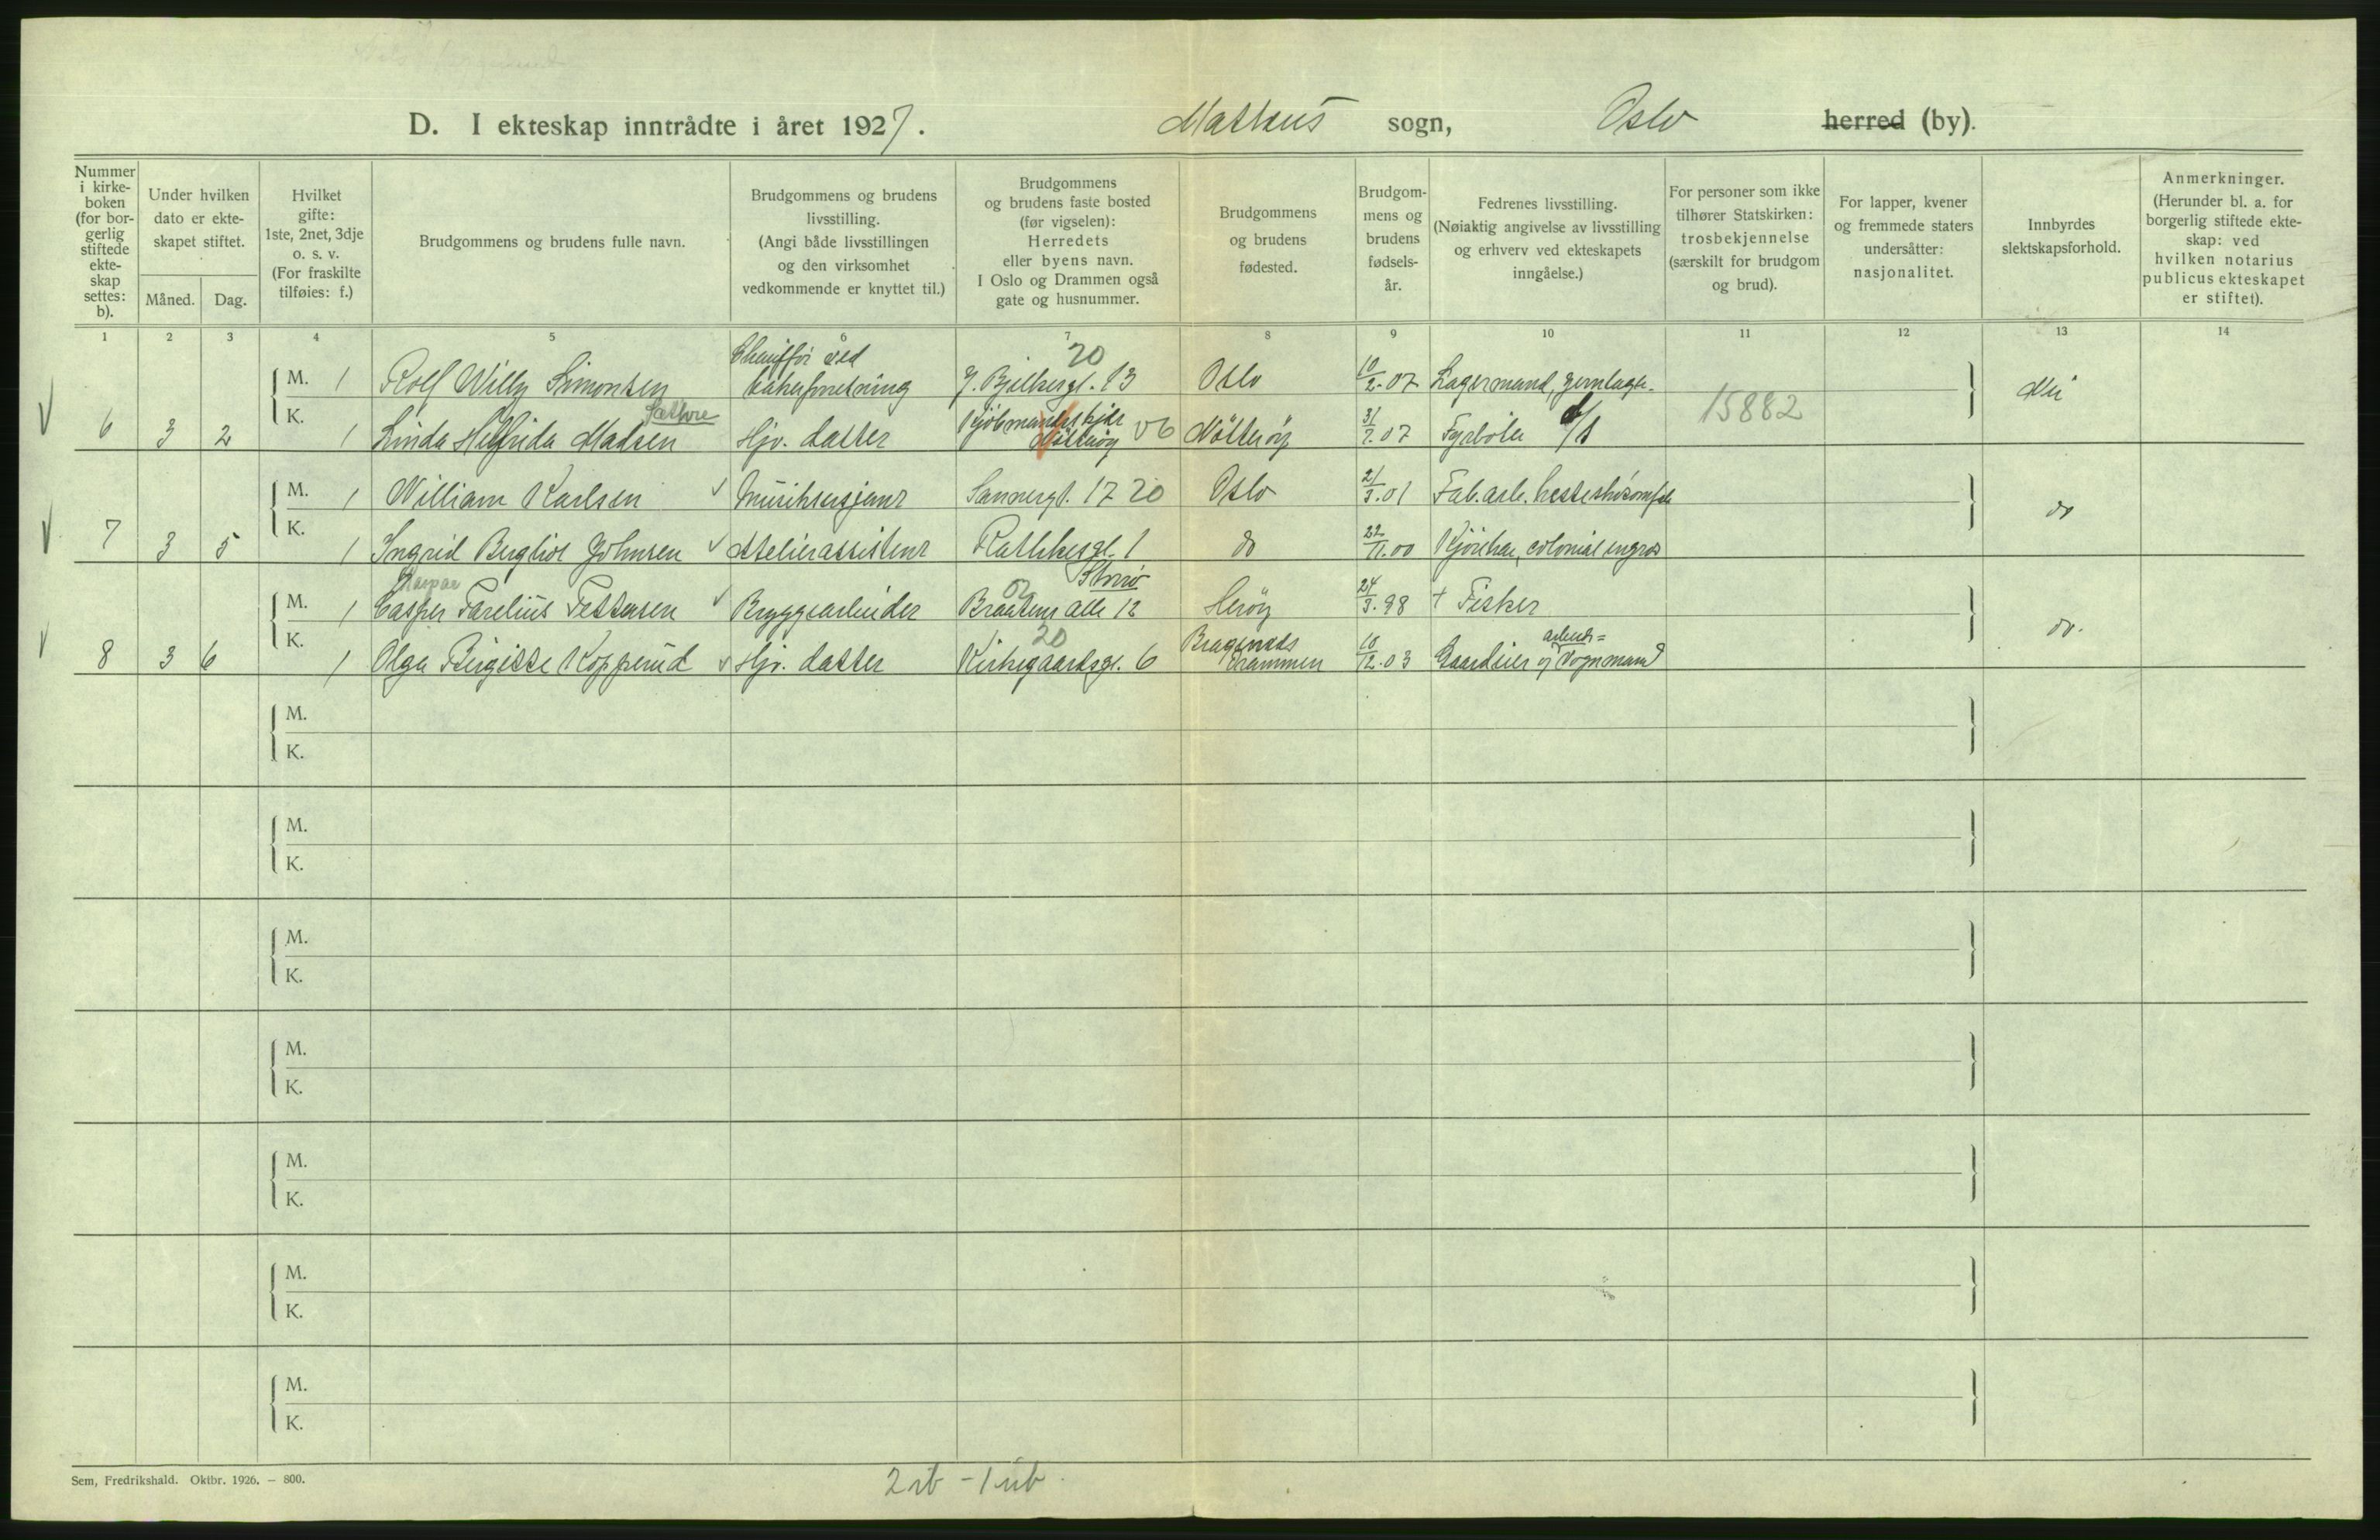 D. I ekteskap inntrådte i året 1927. Matheus sogn, Oslo herred (by).
Nummer i kirke-boken (for bor-gerlig stiftede ekte-skap settes: b).
Under hvilken dato er ekte-skapet stiftet.
Måned. Dag.
Hvilket gifte: 1ste, 2net, 3dje o. s. v. (For fraskilte tilføies: f.)
Brudgommens og brudens fulle navn.
Brudgommens og brudens livsstilling. (Angi både livsstillingen og den virksomhet vedkommende er knyttet til.)
Brudgommens og brudens faste bosted (før vigselen): Herredets eller byens navn. I Oslo og Drammen også gate og husnummer.
Brudgommens og brudens fødested.
Brudgom-mens og brudens fødsels-år.
Fedrenes livsstilling. (Nøiaktig angivelse av livsstilling og erhverv ved ekteskapets inngåelse.)
For personer som ikke tilhører Statskirken: trosbekjennelse (særskilt for brudgom og brud).
For lapper, kvener og fremmede staters undersåtter: nasjonalitet.
Innbyrdes slektskapsforhold.
Anmerkninger. (Herunder bl. a. for borgerlig stiftede ekte-skap: ved hvilken notarius publicus ekteskapet er stiftet).
1 2 3 4 5 6 7 8 9 10 11 12 13 14
Chaufför ved 20
M. 1 Rolf Willy Simonsen bakerforretning J. Bjelkesgt. 13 Oslo 10/2.07 Lagermand, jernlager.
Sæthre
15882
K. 6 3 2 1 Linda Helfrida Madsen Hjv. datter Nötteröy 06 Nötteröy 31/7.07 Fyrböter
M. 1 William Karlsen Musikersjent Sannergt. 17 20 Oslo 21/3.01 Fab.arb. hesteskosömfab
do
K. 7 3 5 1 Ingrid Bergliot Johnsen Atelierassistent Rathkesgt. 1 do 22/11.00 Kjörekar, colonial engros
Kaspar
Storö
M. 1 Casper Farelius Pettersen Bryggearbeider Braatens alle 12 Heröy 24/3.98 + Fisker
do.
20
Bragernæs arbeids=
K. 8 3 6 1 Olga Birgitte Kopperud Hjv. datter Kirkegaardsgt. 6 Drammen 10/12.03 Gaardeier og Vognmand
M.
K.
M.
K.
M.
K.
M.
K.
M.
K.
M.
K.
M.
K.
Sem, Fredrikshald. Oktbr. 1926. — 800.
2 rb - 1 ub.